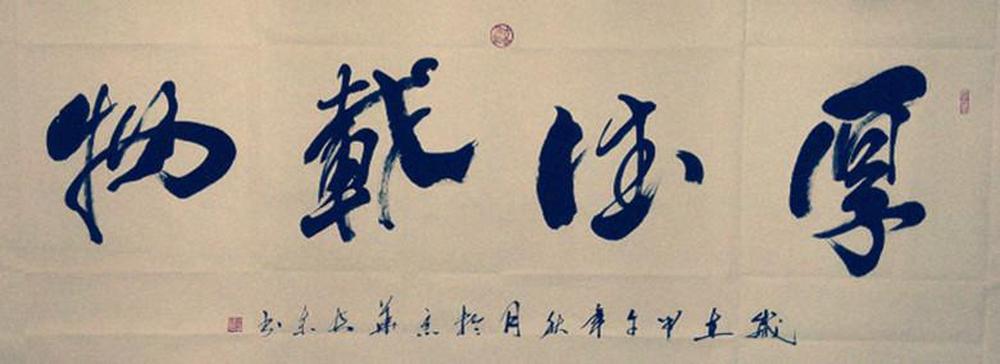 厚德載物
歲在甲午年秋月於京華